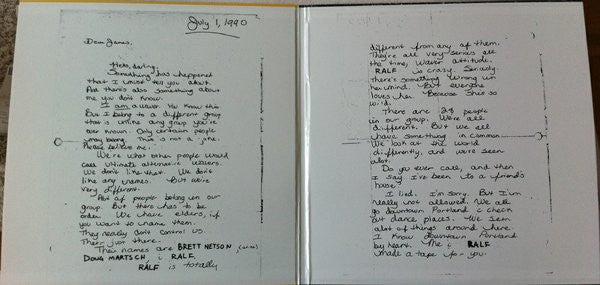 July 1, 1990
Dear James,
Hello, darling.
Something has happened
that I must tell you about.
And there's also something about
me you don't know.
I am a waver. You know this.
But I belong to a different group
that is unlike any group you've
ever known. Only certain people
may belong. This is not a joke.
Please believe me.
We're what other people would
call ultimate alternative wavers.
We don't like that. We don't
like any names. But we're
very different.
Alot of people belong in our
group. But there has to be
order. We have elders, if
you want to name them.
They really don't control us.
They're just there.
Their names are BRETT NETSON,
DOUG MARTSCH, & RALF.
RALF is totally
different from any of them.
They're all very serious all
the time, Waver attitude.
RALF is crazy. Seriously.
There's something wrong in
her mind. But everyone
loves her. Because she's so
wild.
There are 28 people
in our group. We're all
different. But we all
have something in common.
We look at the world
differently, and we've seen
alot.
Do you ever call, and then
I say I've been to a friend's
house?
I lied. I'm sorry. But I'm
really not allowed. We all
go downtown Portland & check
out dance places. We've seen
alot of things around here.
I know downtown Portland
by heart. Me & RALF
made a tape for you.